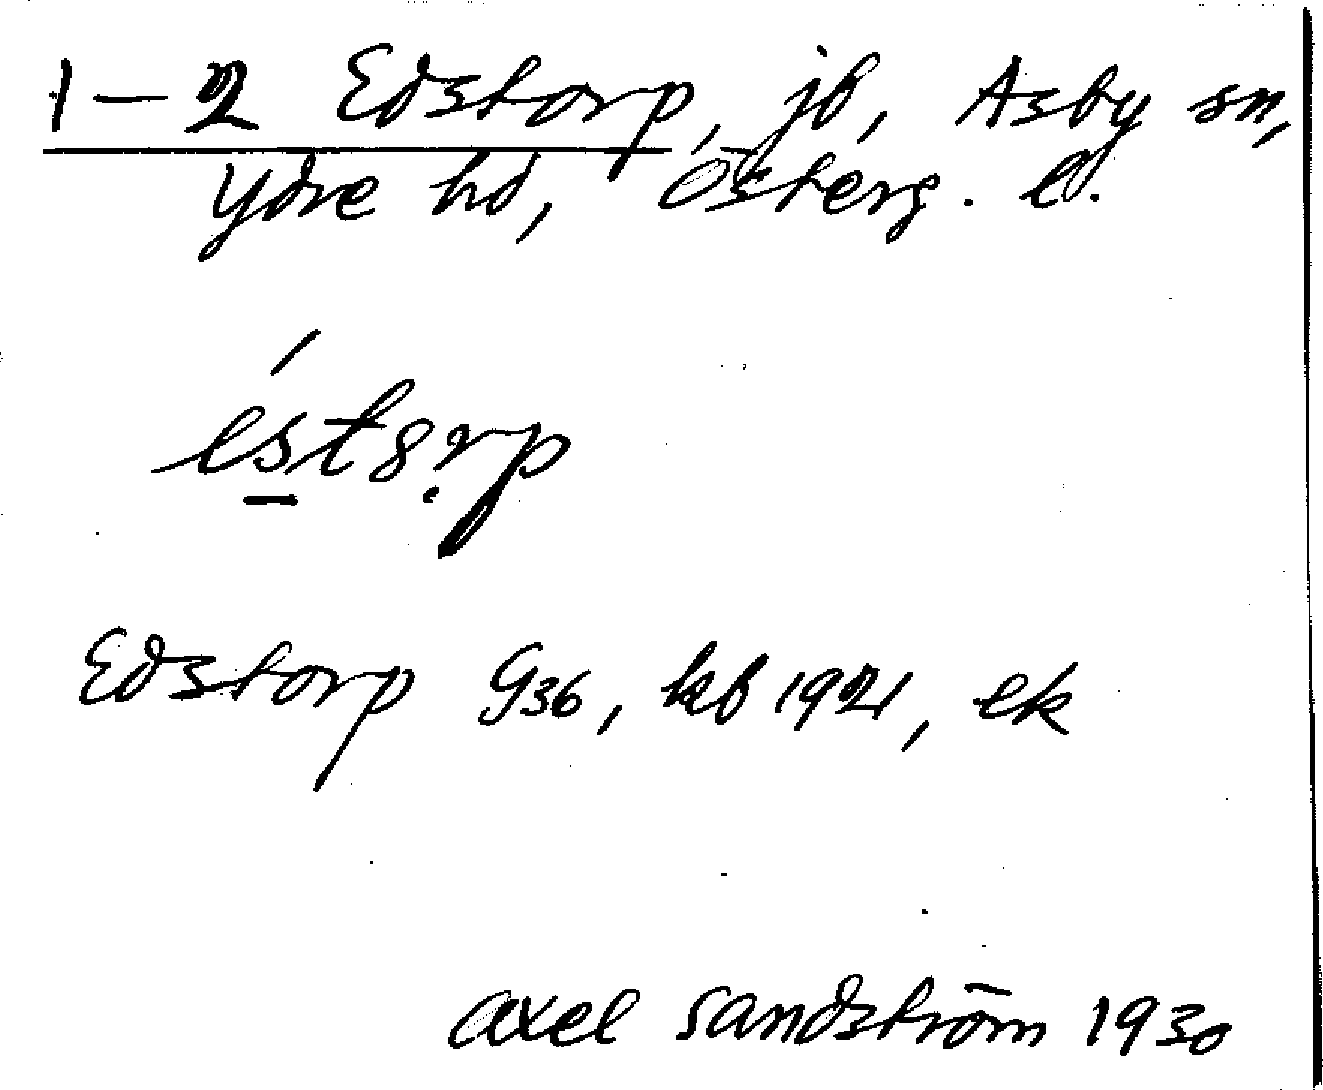 1–2 Edstorp, jb, Asby sn,
Ydre hd, Österg. l.
Edstorp G36, kb 1921, ek
Axel Sandström 1930